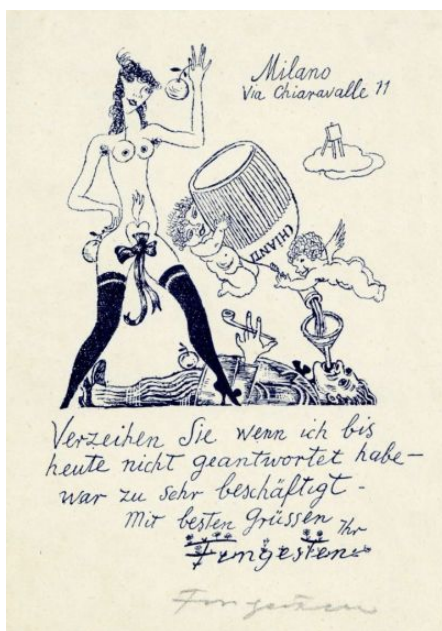 Milano
Via Chiaravalle 11
CHIANTI
Verzeihen Sie wenn ich bis
heute nicht geantwortet habe-
war zu sehr beschäftigt -
Mit besten Grüssen Ihr
Fingesten
Fingesten